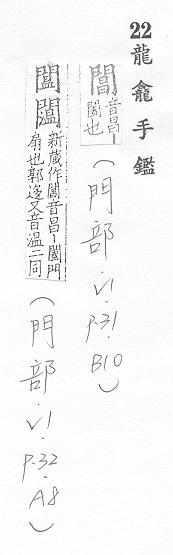 22 龍龕手鑑
閶 音昌〜
闔也
(門部.V1.P.31.B10)
新藏作閶音昌〜闔門
扇也郭迻又音溫二同
(門部.V1.P.32.A8)